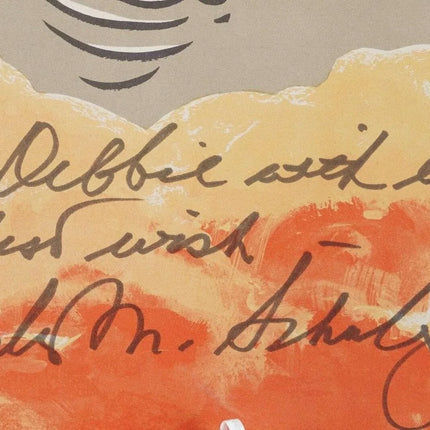 Debbie with
wish —
M. Schulz